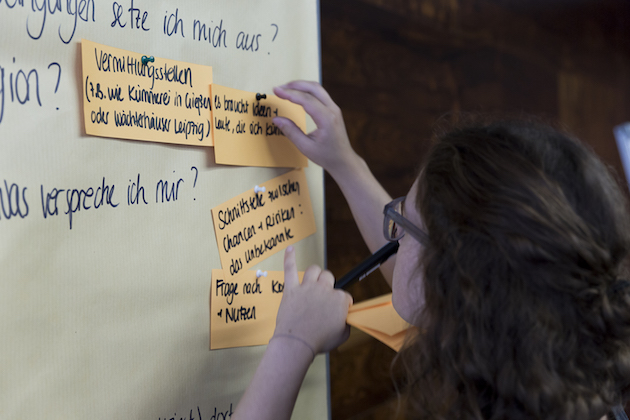 ingungen setze ich mich aus?
gion?
Vermittlungsstellen
(z.B. wie Kümmerei in Gießen
oder Wächterhäuser Leipzig)
es braucht Ideen +
Leute, die
was verspreche ich mir?
Schnittstelle zwischen
Chancen + Risiken:
das Unbekannte
Frage nach
+ Nutzen
dort